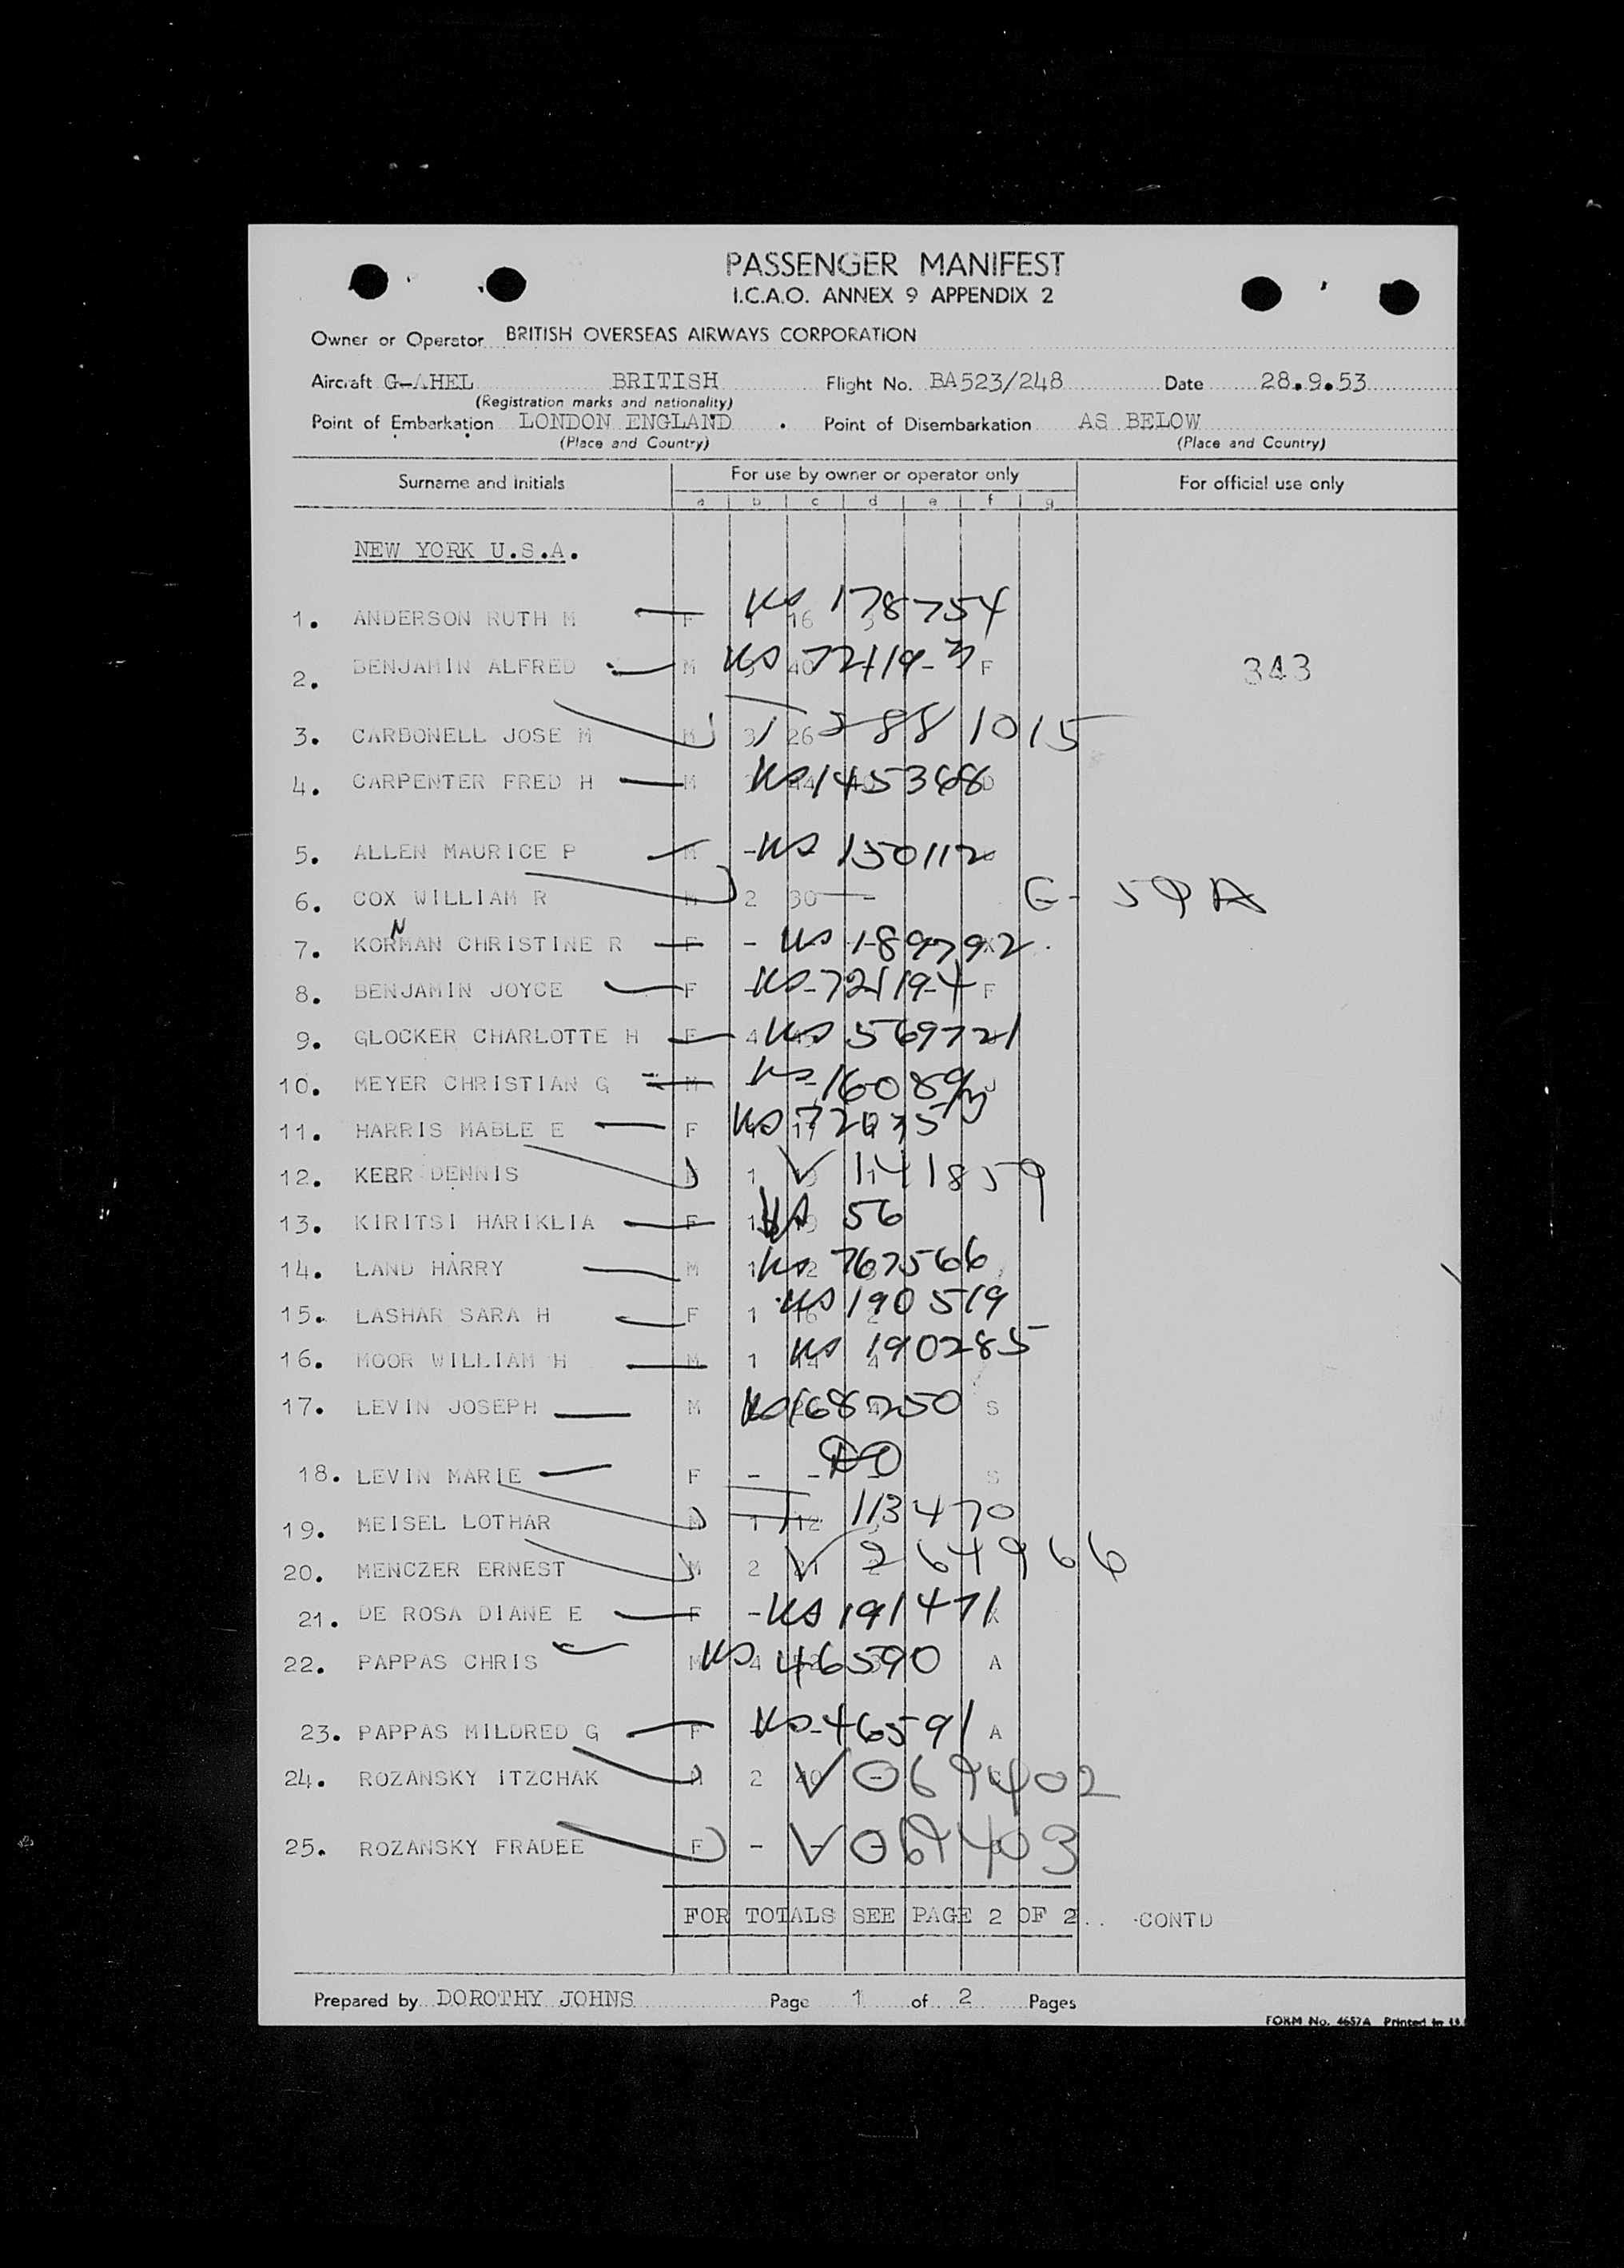 PASSENGER MANIFEST
I.C.A.O. ANNEX 9 APPENDIX 2
Owner or Operator BRITISH OVERSEAS AIRWAYS CORPORATION
Aircraft G-AHEL BRITISH Flight No. BA523/248 Date 28.9.53
(Registration marks and nationality)
Point of Embarkation LONDON ENGLAND . Point of Disembarkation AS BELOW
(Place and Country) (Place and Country)
Surname and initials For use by owner or operator only For official use only
a b c d e f g
NEW YORK U.S.A.
1. ANDERSON RUTH M F 16 178754
2. BENJAMIN ALFRED M 40 72119-3 F 343
3. CARBONELL JOSE M M 3 26 2881015
4. CARPENTER FRED H M 145368
5. ALLEN MAURICE P M - 150112
6. COX WILLIAM R M 2 30 - G-59A
7. KORNMAN CHRISTINE R F - 189792
8. BENJAMIN JOYCE F 72119-4 F
9. GLOCKER CHARLOTTE H F 4 569721
10. MEYER CHRISTIAN G M
11. HARRIS MABLE E F
12. KERR DENNIS 1 V 141859
13. KIRITSI HARIKLIA F 1 56
14. LAND HARRY M 1 767566
15. LASHAR SARA H F 1 16 2 190519
16. MOOR WILLIAM H M 1 14 4 190285
17. LEVIN JOSEPH M 168250 S
18. LEVIN MARIE F - - DO S
19. MEISEL LOTHAR M 1 12 113470
20. MENCZER ERNEST M 2 21 V 264966
21. DE ROSA DIANE E F - 191471
22. PAPPAS CHRIS M 4 46590 A
23. PAPPAS MILDRED G F 46591 A
24. ROZANSKY ITZCHAK M 2 40 - V 069402
25. ROZANSKY FRADEE F - V 069403
FOR TOTALS SEE PAGE 2 OF 2.. CONTD
Prepared by DOROTHY JOHNS Page 1 of 2 Pages
FORM No. 4657A Printed in